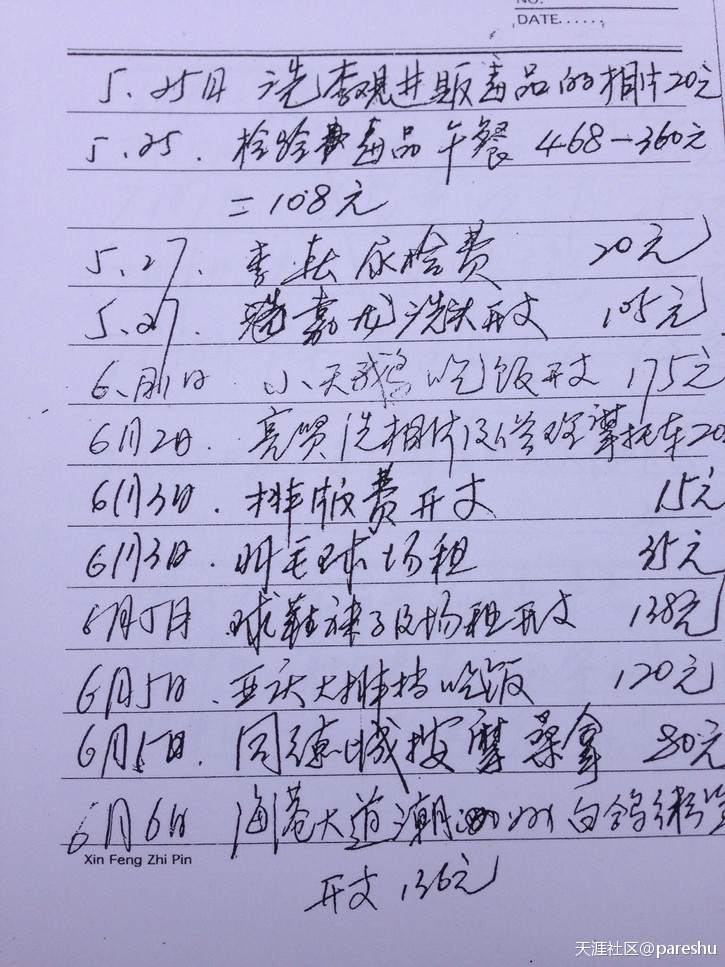 NO.
DATE......
5.25日 洗李观进贩毒品的相片20元
5.25. 检验费毒品午餐 468-360元
=108元
5.27. 李 尿检费 20元
5.27. 嘉龙洗头开支 105元
6.月1日 小天鹅吃饭开支 175元
6月2日. 洗相片及 摩托车20
6月3日. 排版费开支 15元
6月3日. 羽毛球场租 35元
6月5日 球鞋裤子及场租开支 138元
6月5日. 亚庆大排档吃饭 120元
6月5日. 同德城按摩桑拿 80元
6月6日 海港大道潮州白鸽粥
开支 136元
Xin Feng Zhi Pin
天涯社区@pareshu